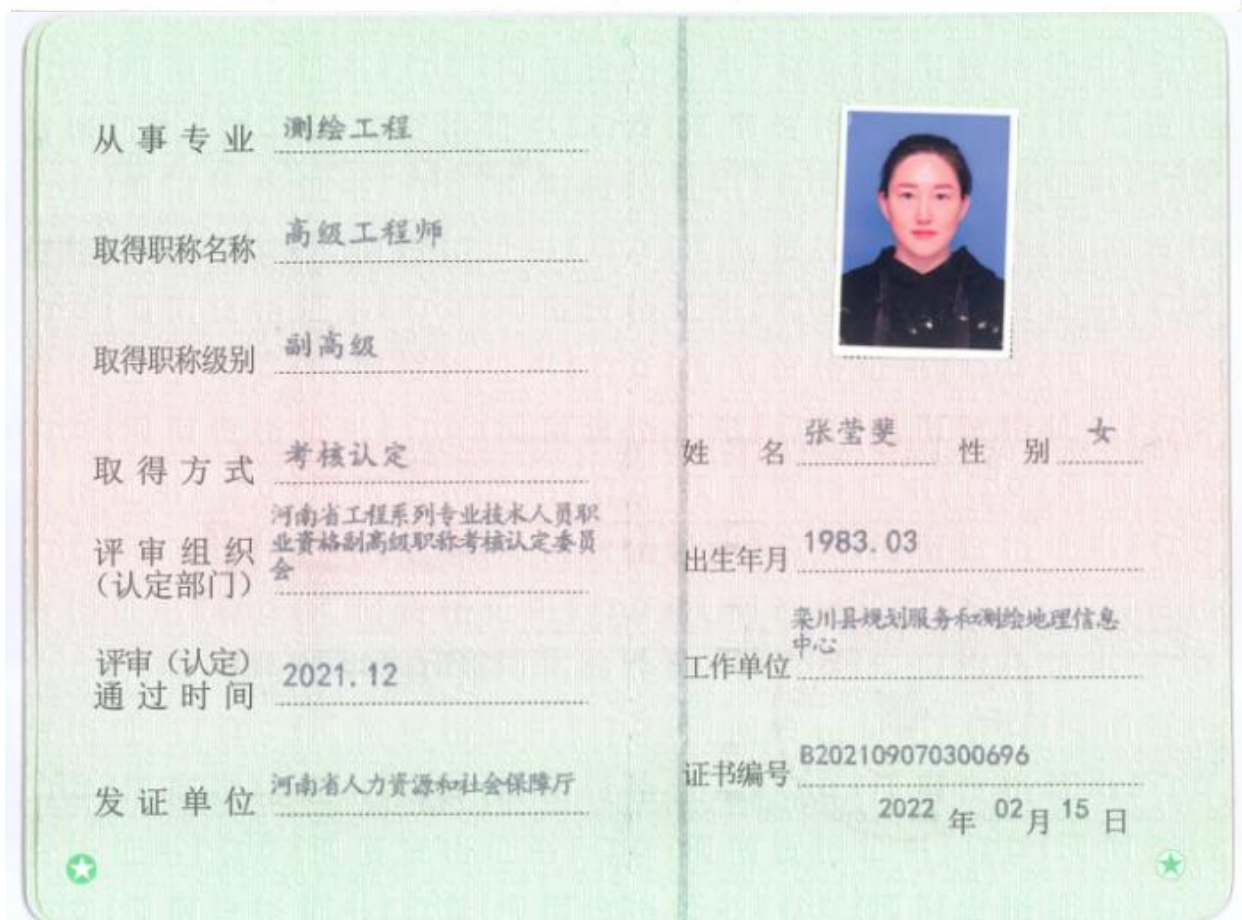 从事专业 测绘工程
取得职称名称 高级工程师
取得职称级别 副高级
取得方式 考核认定
评审组织
(认定部门)
河南省工程系列专业技术人员职
业资格副高级职称考核认定委员
会
评审(认定)
通过时间
2021.12
发证单位 河南省人力资源和社会保障厅
姓名 张莹斐 性别 女
出生年月 1983.03
工作单位
栾川县规划服务和测绘地理信息
中心
证书编号 B202109070300696
2022 年 02 月 15 日